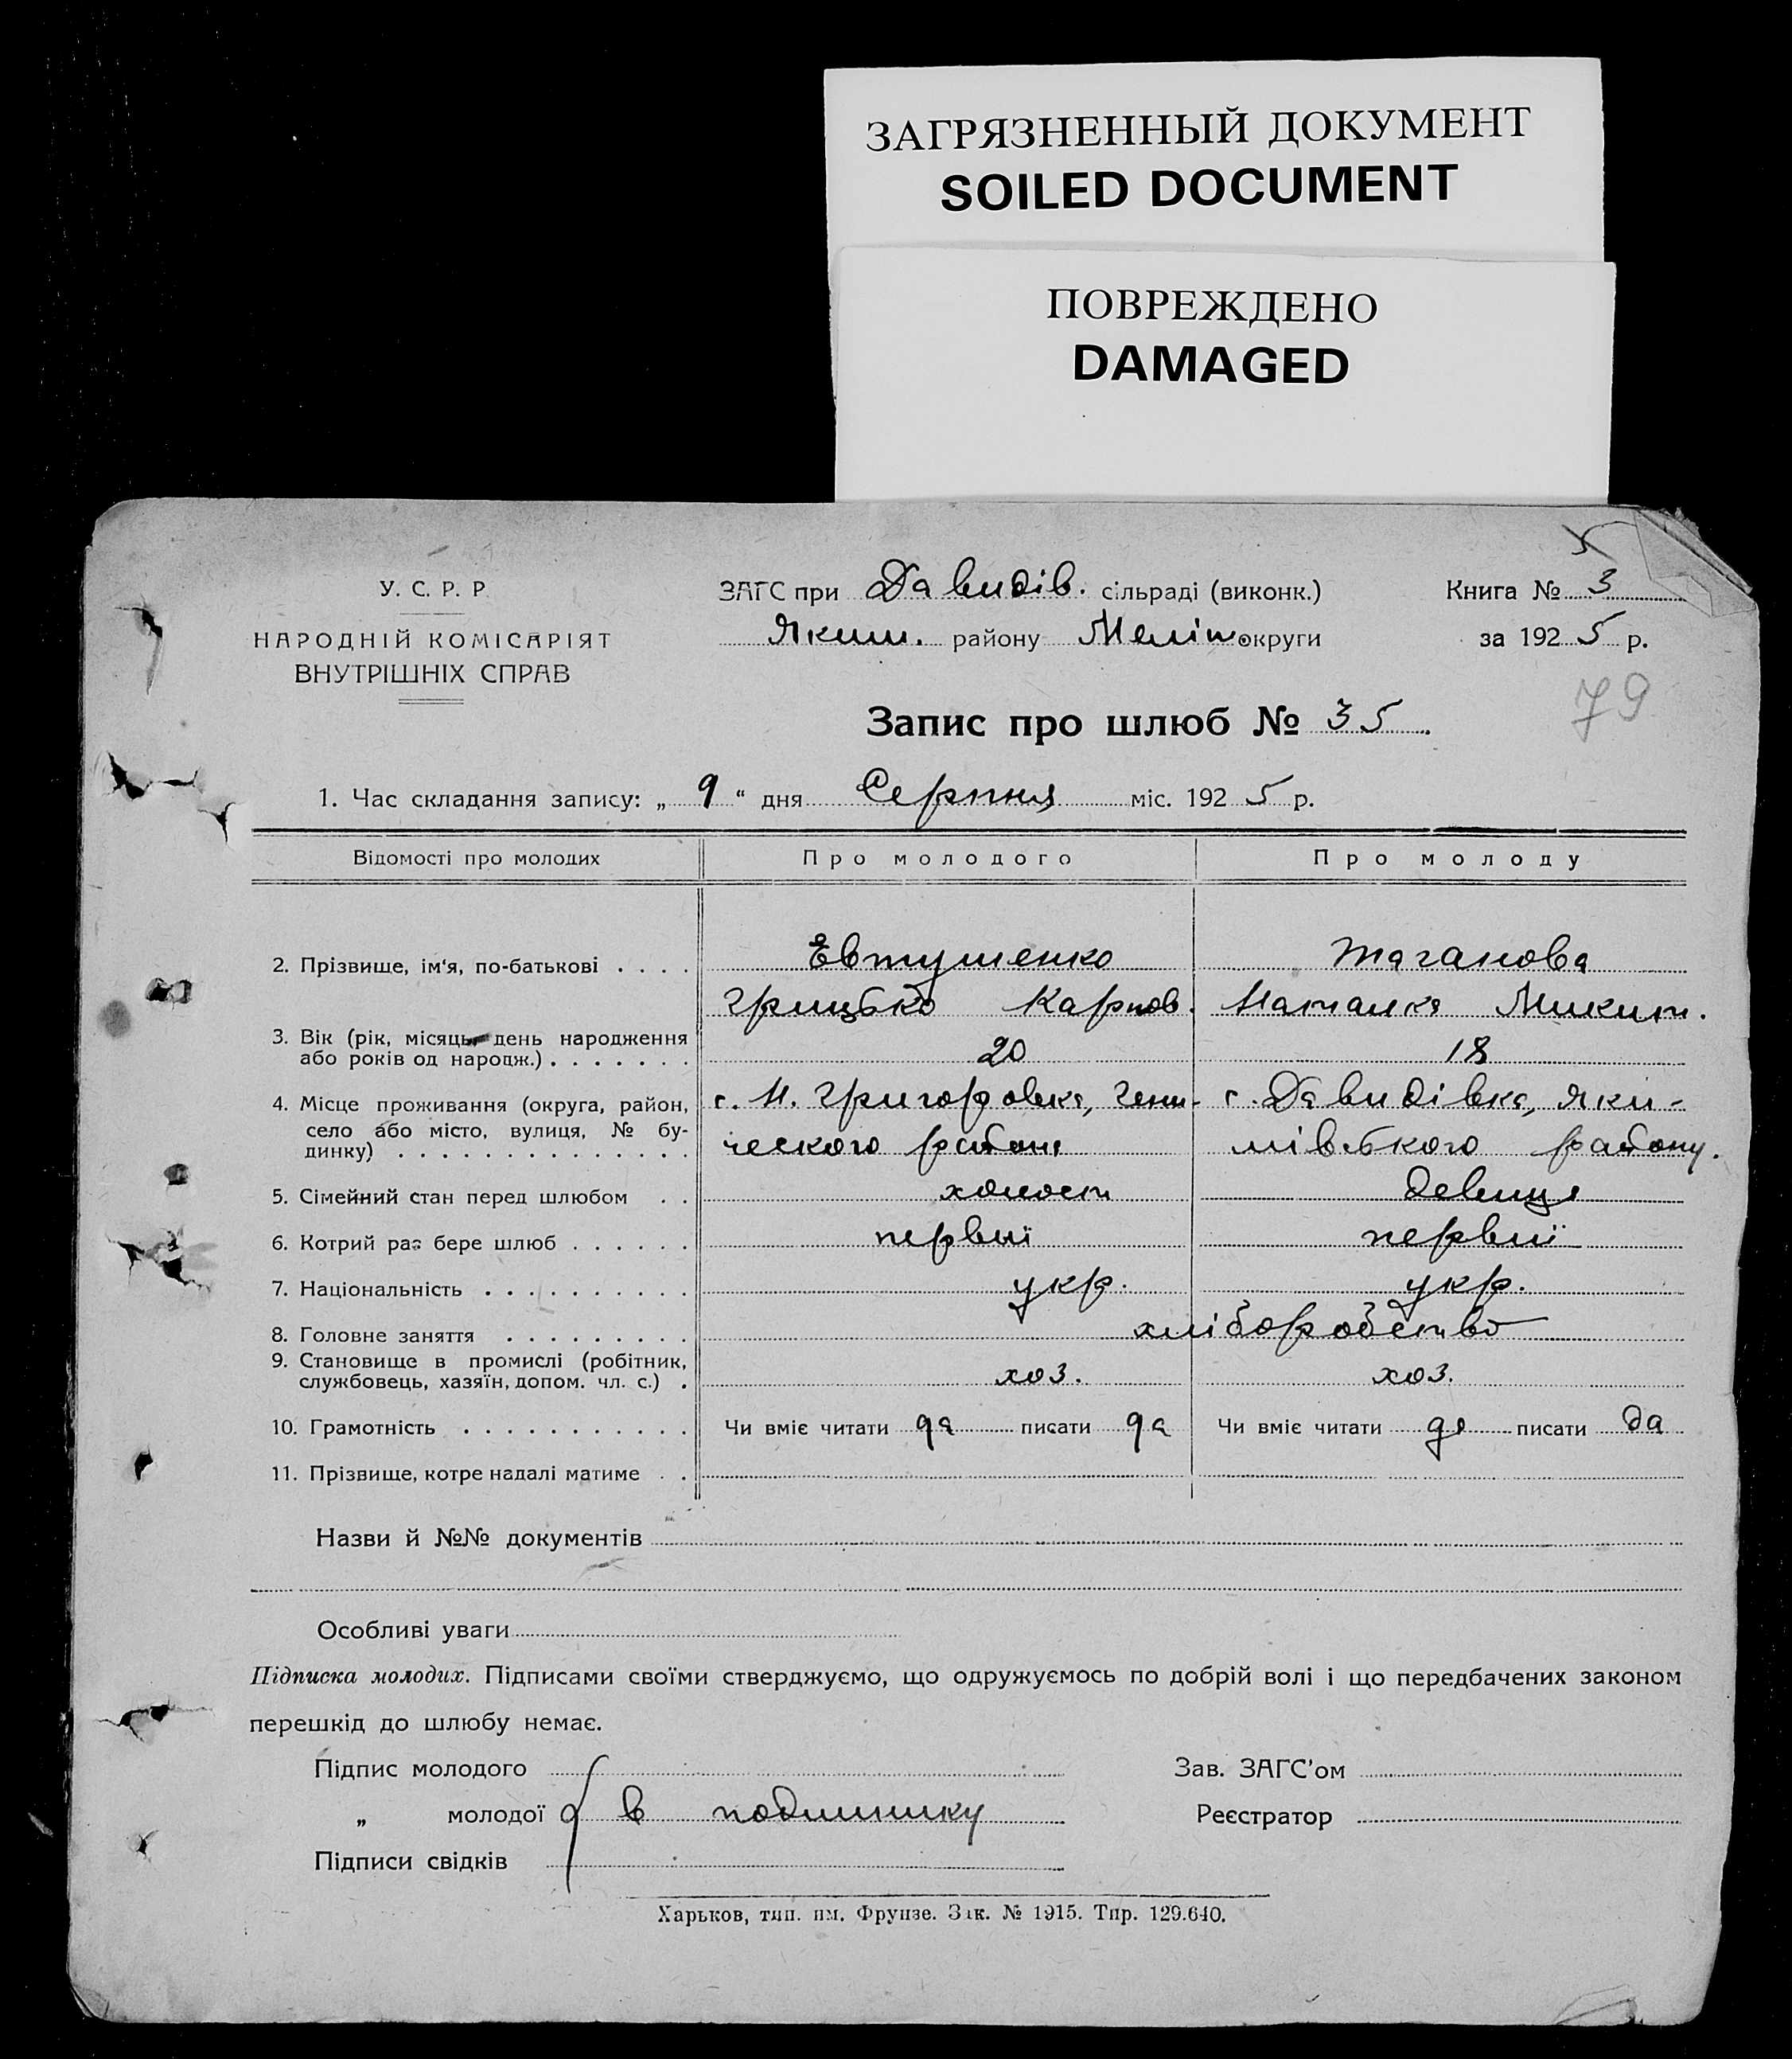 ЗАГРЯЗНЕННЫЙ ДОКУМЕНТ
SOILED DOCUMENT
ПОВРЕЖДЕНО
DAMAGED
5
У. С. Р. Р
НАРОДНІЙ КОМІСАРІЯТ
ВНУТРІШНІХ СПРАВ
ЗАГС при Давидів. сільраді (виконк.)
Яким. району Меліт округи
Книга № 3
за 1925 р.
79
Запис про шлюб № 35
1. Час складання запису: „ 9 “ дня Серпня міс. 1925 р.
Відомості про молодих Про молодого Про молоду
2. Прізвище, ім'я, по-батькові . . . . Евтушенко Таганова
Грицько Карпов. Наталка Микит.
3. Вік (рік, місяць, день народження
або років од народж.) . . . . . . . 20 18
4. Місце проживання (округа, район,
село або місто, вулиця, № бу-
динку) . . . . . . . . . . . . . .
с. Н. Григоровка, Гени-
ческого района
с. Давидівка, Яки-
мівського району.
5. Сімейний стан перед шлюбом . . холост девиця
6. Котрий раз бере шлюб . . . . . . первиї первиї
7. Національність . . . . . . . . . . укр. укр.
8. Головне заняття . . . . . . . . . хліборобство
9. Становище в промислі (робітник,
службовець, хазяїн, допом. чл. с.) . хоз. хоз.
10. Грамотність . . . . . . . . . . . Чи вміє читати да писати да Чи вміє читати да писати да
11. Прізвище, котре надалі матиме . .
Назви й №№ документів
Особливі уваги
Підписка молодих. Підписами своїми стверджуємо, що одружуємось по добрій волі і що передбачених законом
перешкід до шлюбу немає.
Підпис молодого Зав. ЗАГС'ом
„ молодої в подлинику Реєстратор
Підписи свідків
Харьков, тип. им. Фрунзе. Зак. № 1915. Тир. 129.640.